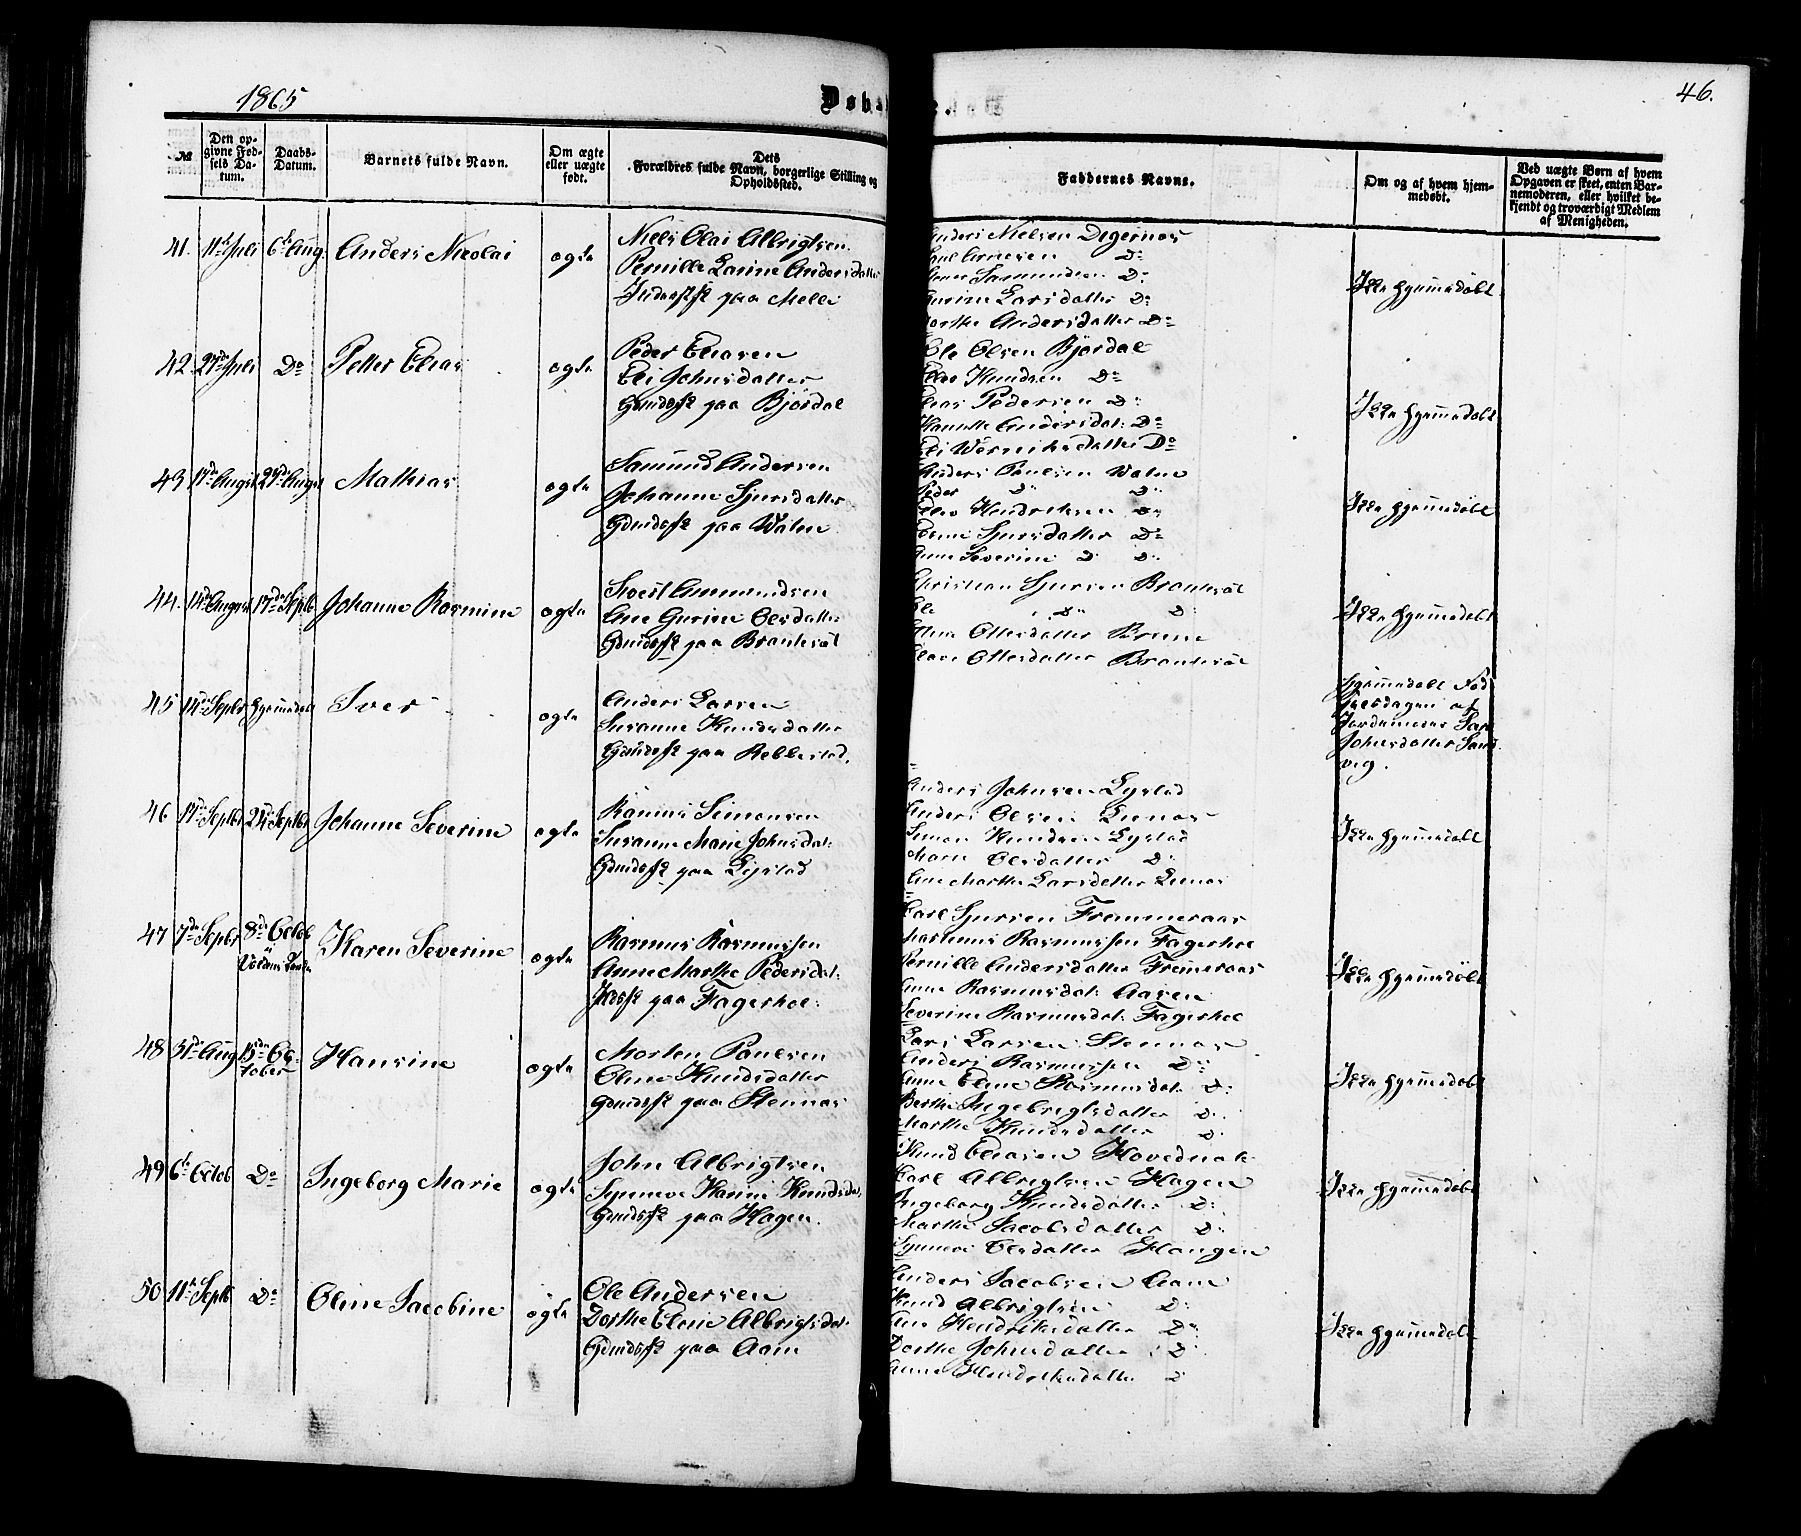 1865
Døb
46.
No
Den opgivne Fødsels Datum.
Daabs-Datum.
Barnets fulde Navn.
Om ægte eller uægte født.
Dets Forældres fulde Navn, borgerlige Stilling og Opholdssted.
Faddernes Navne.
Om og af hvem hjemmedøbt.
Ved uægte Børn af hvem Opgaven er skeet, enten Barnemoderen, eller hvilket bekjendt og troværdigt Medlem af Menigheden.
41. 11te Juli 6te Aug. Anders Nicolai ægte
Niels Olai Albrigtsen
Pernille Larine Andersdatter
Inderst paa Melle
Anders Nielsen Degernæs
Poul Arnesen Do
Samundsen Do
Gurine Larsdatter Do
Dorthe Andersdatter Do
Ikke hjemmedøbt
42. 27de Juli Do Petter Elias ægte
Peder Eliasen
Eli Johnsdatter
Gdmdsfk paa Bjørdal
Ole Olsen Bjørdal
Knudsen Do
Elias Pedersen Do
Andersdat: Do
Eli Do
Ikke hjemmedøbt
43. 17de August 27de August Mathias ægte
Samund Andersen
Johanne Sjursdatter
Gdmdsfk paa Walen
Anders Poulsen Walen
Peder Do Do
Elias Hendriksen Do
Sjursdatter Do
Anne Severine D Do
Ikke hjemmedøbt
44. 14de August 17de Septb Johanne Rasmine ægte
Amundsen
Ane Gurine Olsdatter
Gdmdsfk paa
Christian Sjursen
Ole Do Do
Ottersdatter Brune
Ottersdatter
Ikke hjemmedøbt
45 14de Septbr hjemmedøbt Iver ægte
Anders Larsen
Susanne Knudsdatter
Gdmdsfk paa Rebbestad.
Hjemmedøbt
af
Jordemoder
Johnsdatter Sand
vig.
46 14de Septbr 24de Septbr Johanne Severine ægte
Rasmus Simonsen
Susanne Marie Johnsdat:
Gdmdsfk paa Lystad
Anders Johnsen Lystad
Anders Olsen Lunas
Simon Knudsen Lystad
Marie Olsdatter Do
Ane Marthe Larsdatter Lunas
Ikke hjemmedøbt
47 7de Septbr 8de Octob i Voldens Karen Severine ægte
Rasmus Rasmussen
Anne Marthe Pedersdat:
paa Fagerhol:
Carl Sjursen Fremmeraas
Rasmussen Fagerhol
Pernille Andersdatter Fremmeraas
Anne Rasmusdat: Aasen
Severine Rasmusdat: Fagerhol
Ikke hjemmedøbt
48 31te Aug 15de October Hansine ægte
Morten Poulsen
Oline Knudsdatter
Gdmdsfk paa Stennæs
Lars Larsen Stennæs
Anders Rasmussen Do
Anne Oline Rasmusdat: Do
Berthe Ingebrigtsdatter Do
Marthe Knudsdatter Do
Ikke hjemmedøbt
49 6te Octob Do Ingeborg Marie ægte
John Albrigtsen
Synneve Hanna Knudsdat:
Gdmdsfk paa Hagen.
Knud Eliasen Hovednak
Carl Albrigtsen Hagen
Ingeborg Knudsdatter Do
Marthe Jacobsdatter Do
Synneve Olsdatter Haugen
Ikke hjemmedøbt
50 11te Septb Do Oline Jacobine ægte
Ole Andersen
Dorthe Oline Albrigtsdat:
Gdmdsfk paa Aam
Anders Jacobsen Aam
Knud Albrigtsen Do
Ane Hendriksdatter Do
Dorthe Johnsdatter Do
Anne Hendriksdatter Do
Ikke hjemmedøbt